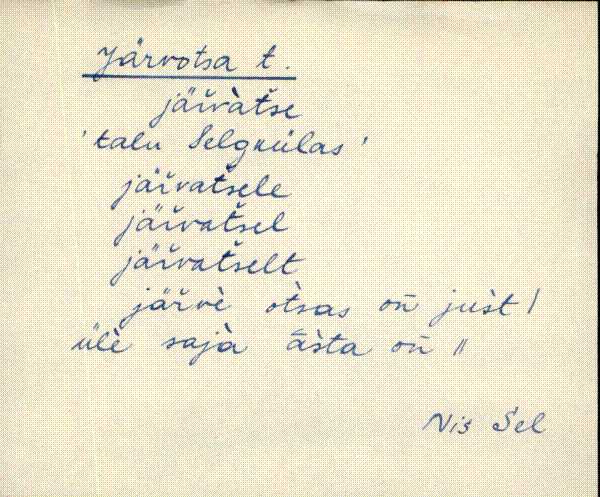 Järvotsa t.
jäřvàtše
'talu Selgkülas'
jäřvatšele
jäřvatšel
jäřvatšelt
järvè òtsas on̄ just /
ülè sajà āšta on̄ //
Nis Sel